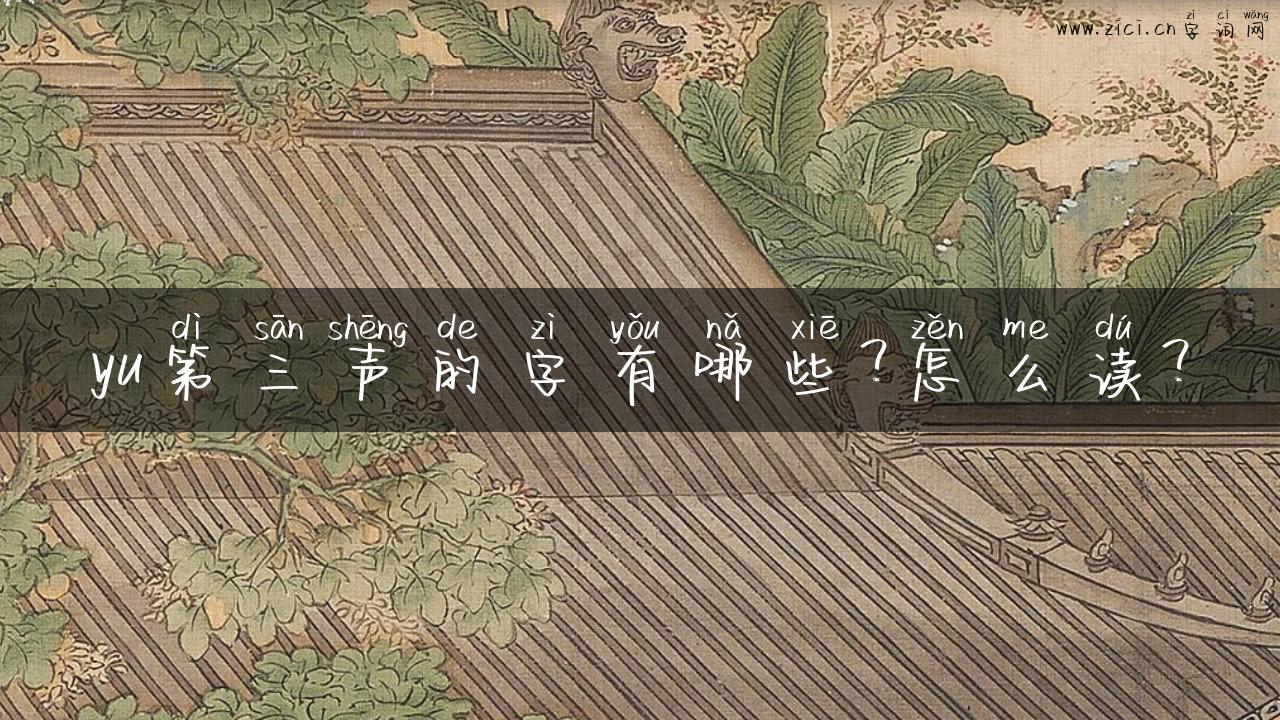 zì cí wǎng
www.zici.cn 字词网
dì sān shēng de zì yǒu nǎ xiē zěn me dú
yu第三声的字有哪些?怎么读?